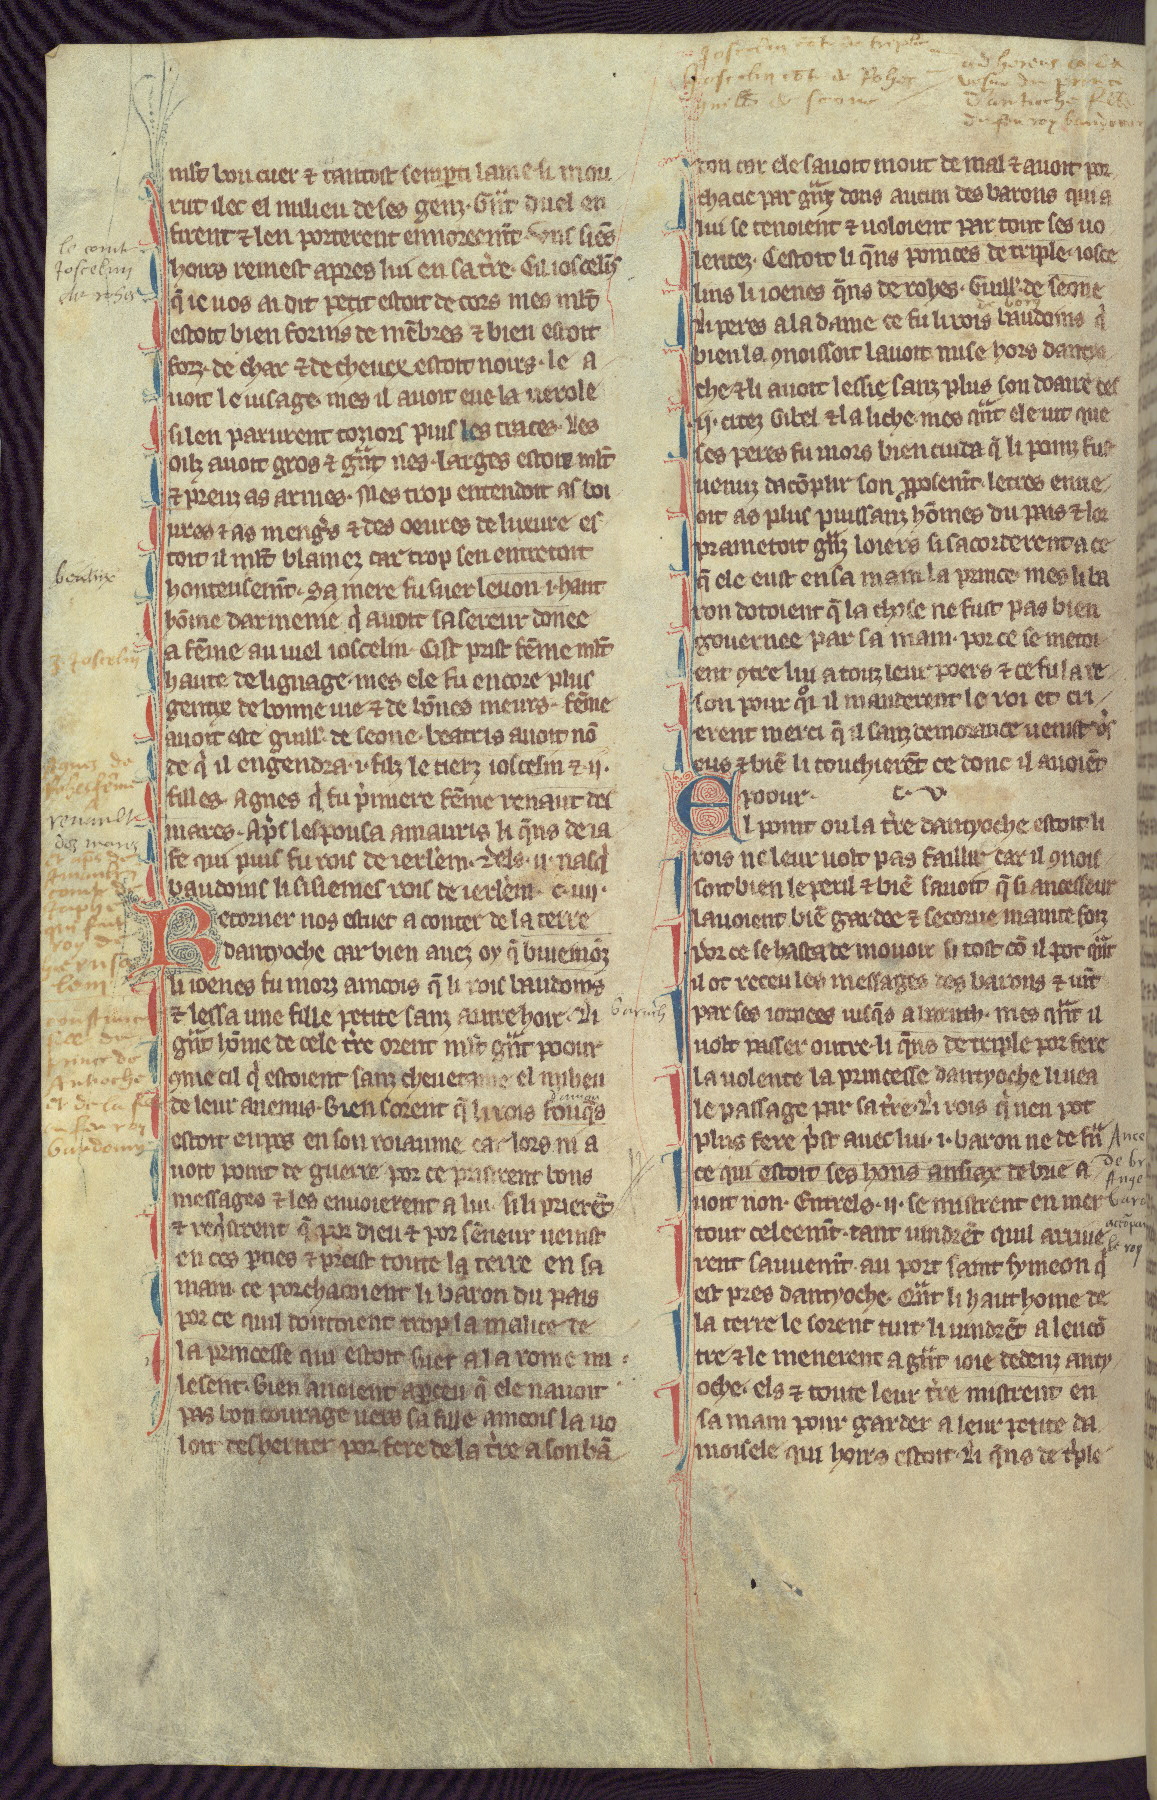 mlt bon cuer ⁊ tantost senparti lame si mou
rut ilec el milieu de ses genz. Gñt duel en
firent ⁊ len porterent ennoreemẽt. Vns siẽs
hoirs remest apres lui en sa tr̃e. Cil ioscelĩs
q̃ ie uos ai dit petit estoit de cors mes mlt
estoit bien formis de mẽbres ⁊ bien estoit
forz. de char ⁊ de cheuex estoit noirs. le a
uoit le uisage mes il auoit eue la uerole
si len parurent toziors puis les traces. Les
oilz auoit gros ⁊ gñt nes. larges estoit mlt
⁊ preuz as armes. Mes trop entendoit as boi
ures ⁊ as mengiers ⁊ des oeures de luxure es
toit il mlt blamez car trop sen entretoit
honteusemẽt. Sa mere fu suer leuon .i. haut
hõme darmenie q̃ auoit sa sereur donee
a fẽme au uiel ioscelin. Cist prist fẽme mlt
haute de lignage mes ele fu encore plus
gentix de bonne uie ⁊ de bones meurs. fẽme
auoit este guill'. de seone. beatris auoit nõ
de q̃ il engendra .i. filz le tierz ioscelin ⁊ .ij.
filles. Agnes q̃ fu p̃miere fẽme renaut des
mares. Ap̃s lespousa amauris li q̃ns de ia
fe qui puis fu rois de ierl'em. Dels .ij. nasq̃
baudoins li sisiemes rois de ierl'em. c. iiij.
Retorner nos estuet a conter de la terre
dantyoche car bien auez oy q̃ buiemõz
li ioenes fu morz aincois q̃ li rois baudoins
⁊ lessa une fille petite sanz autre hoir. Li
gñt hõme de cele tr̃e orent mlt gñt poour
9me cil q̃ estoient sanz cheuetaine el milieu
de leur anemis. Bien sorent q̃ li rois fouq̃s
estoit en pes en son roiaume car lors ni a
uoit point de guerre por ce pristrent bons
messages ⁊ les enuoierent a lui. si li prierẽt
⁊ req̃strent q̃ por dieu ⁊ por sẽneur uenist
en ces p̃ties ⁊ preist toute la terre en sa
main. ce porchacoient li baron du pais
por ce quil doutoient trop la malice de
la princesse qui estoit suer a la roine mi
lesent. Bien auoient apceu q̃ ele nauoit
pas bon courage uers sa fille aincois la uo
loit desheriter por fere de la tr̃e a son bã
don car ele sauoit mout de mal ⁊ auoit por
chacie par gñz dons aucun des barons qui a
lui se tenoient ⁊ uoloient par tout ses uo
lentez. Cestoit li q̃ns pontces de triple. iosce
lins li ioenes q̃ns de rohes. Guill'. de seone
Li peres a la dame ce fu li rois baudoins q̃
bien la 9noissoit lauoit mise hors dantyo
che ⁊ li auoit lessie sanz plus son doaire ces
.ij. citez Gibel ⁊ la liche. mes qñt ele uit que
ses peres fu mors bien cuida q̃ li poinz fust
uenuz dacõplir son p̃posemt. letres enue
oit as plus puissanz hõmes du pais ⁊ lor
prametoit gñz loiers si sacorderent a ce
q̃ ele eust en sa main la prince. mes li ba
ron dotoient q̃ la chose ne fust pas bien
gouernee par sa main. por ce se metoi
ent 9tre lui a touz leur poers ⁊ ce fu la re
son pour q̃i il manderent le roi et cri
erent merci q̃ il sanz demorance uenist ṽs
eus ⁊ biẽ li touchierẽt ce donc il auoiẽt
poour. c. v.
El point ou la tr̃e dantyoche estoit li
rois ne leur uolt pas faillir car il 9nois
soit bien le peril ⁊ biẽ sauoit q̃ si ancesseur
lauoient biẽ gardee ⁊ secorue mainte foiz
por ce se hasta de mouoir si tost cõ il pot qñt
il ot receu les messages des barons ⁊ uĩt
par ses iornees iusq̃s a baruth. mes qñt il
uolt passer outre. li q̃ns de triple por fere
la uolente la princesse dantyoche li uea
le passage par sa tr̃e. Li rois q̃ nen pot
plus fere p̃st auec lui .i. baron ne de frã
ce qui estoit ses hons ansiax de brie a
uoit non. Entrels .ij. se mistrent en mer
tout celeemt. tant uindrẽt quil arriue
rent sauuemẽt au port saint symeon q̃
est pres dantyoche. Qñt li haut home de
la terre le sorent tuit li uindrẽt a lencõ
tre ⁊ le menerent a gñt ioie dedenz anty
oche. els ⁊ toute leur tr̃e mistrent en
sa main pour garder a leur petite da
moisele qui hoirs estoit. Li q̃ns de tiple
le comte
Joscelin
beatrix
3e Joscelin
Agnes de
renault
des mares
baruth